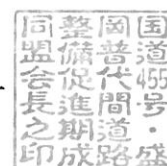 国道455号・盛
岡普代間道路
整備促進期成
同盟会長之印